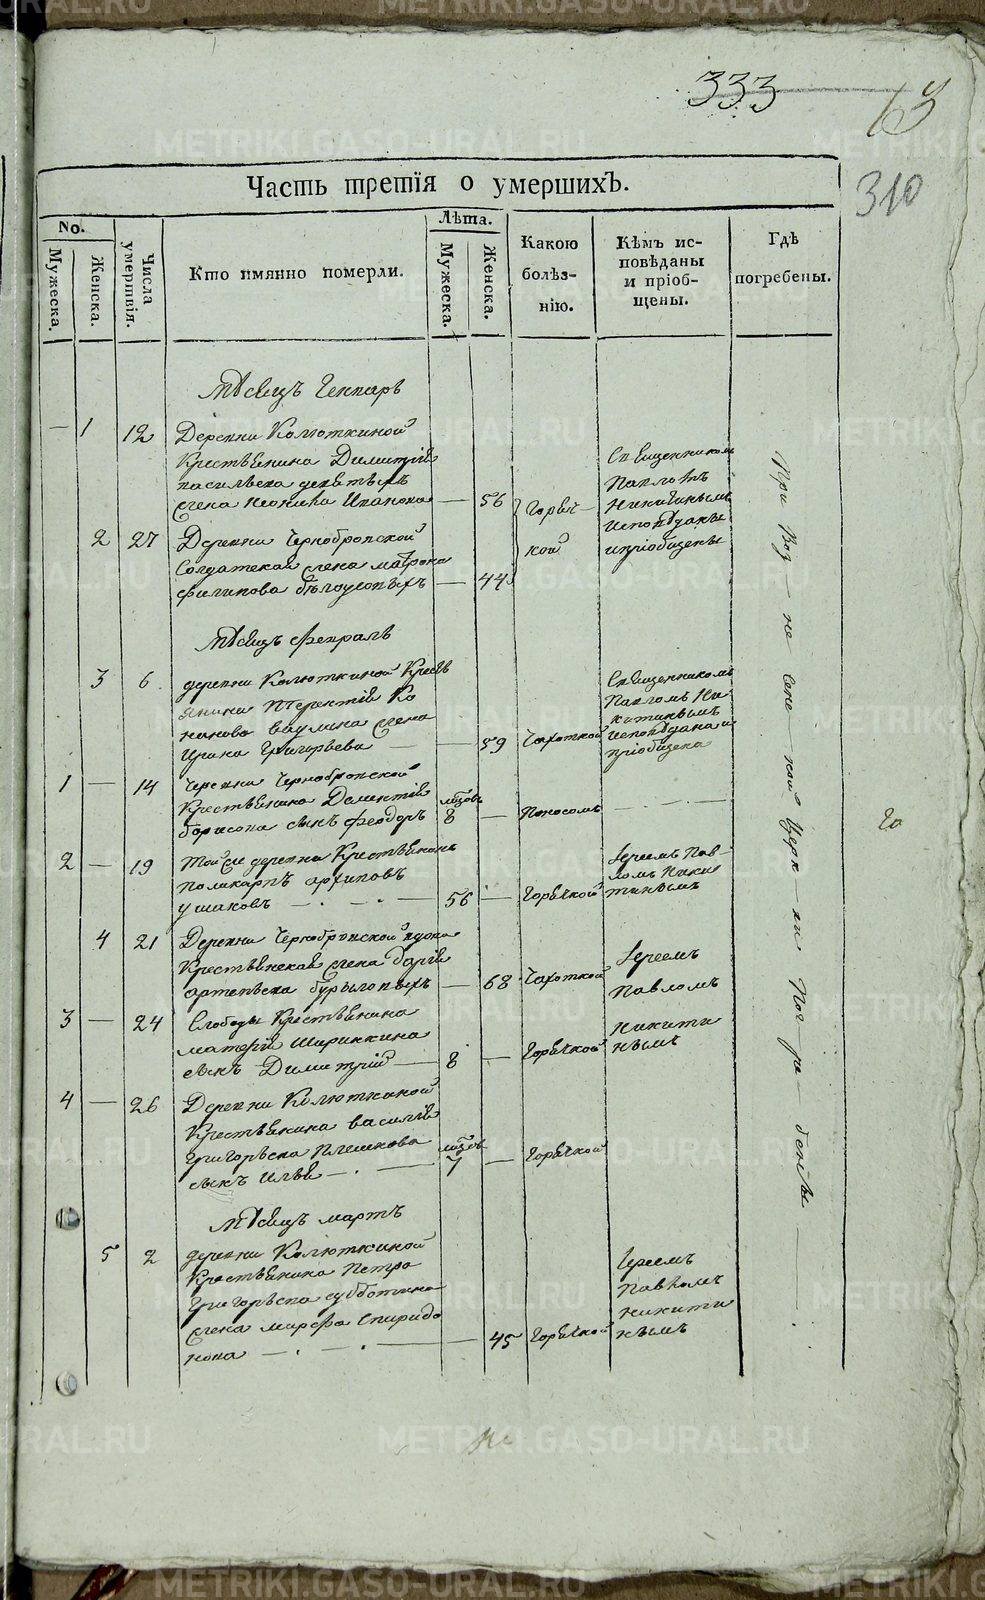 333
13
310
Часть третія о умершихЪ.
No.
Мужеска.
Женска.
Числа умертвія.
Кто имянно померли.
Лѣта.
Мужеска.
Женска.
Какою болѣз-нію.
Кѣмъ ис-повѣданы и пріоб-щены.
Гдѣ погребены.
Мѣсецъ Генварь
1 12 Деревни Колюткиной
Крестьянина Димитрія
жена 56
Горяч-
кой
Священникомъ
Павломъ
Никитинымъ
исповѣданы
и пріобщены
2 27 Деревни Чернобровской
Солдатская жена матрона
филипова бѣлоусовыхъ 44
Мѣсецъ февраль
3 6 деревни Колюткиной Кресть
янина Терентія Ко
нонова жена
Ирина Григорьева 59 Чахоткой
Священникомъ
Павломъ Ни
китинымъ
исповѣдана и
пріобщена
1 14 Деревни Чернобровской
Крестьянина Дементія
борисова сынъ феодоръ 8 Поносомъ
2 19 Той же деревни Крестьянинъ
поликарпъ архиповъ
ушаковъ 56 Горячкой
Іереемъ Пав-
ломъ Ники
тинымъ
4 21 Деревни Чернобровской вдова
Крестьянская жена дарія
артемьева бурылowыхъ 68 Чахоткой
Іереемъ
Павломъ
Никити
нымъ
3 24 Слободы Крестьянина
матфія Ширинкина
сынъ Димитрій 8 Горячкой
4 26 Деревни Колюткиной
Крестьянина василія
Григорьева Плешкова
сынъ Илья 7 Горячкой
Мѣсецъ мартъ
5 2 деревни Колюткиной
Крестьянина Петра
Григорьева субботина
жена марфа Спиридо
нова 45 Горячкой
Іереемъ
Павломъ
Никити
нымъ
При Воз не сенской Церк ви Пог ре бены
METRIKI.GASO-URAL.RU